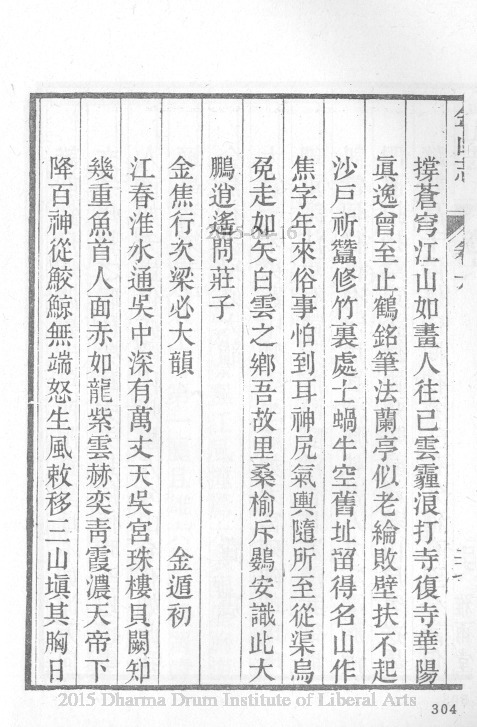 金山志
卷六
撐蒼穹江山如畫人往已雲霾浪打寺復寺華陽
眞逸曾至止鶴銘筆法蘭亭似老綸敗壁扶不起
沙戸祈蠶修竹裏處士蝸牛空舊址留得名山作
焦字年來俗事怕到耳神尻氣輿隨所至從渠烏
兔走如矢白雲之鄉吾故里桑榆斥鷃安識此大
鵬逍遙問莊子
金焦行次梁必大韻 金遁初
江春淮水通吳中深有萬丈天吳宮珠樓貝闕知
幾重魚首人面赤如龍紫雲赫奕靑霞濃天帝下
降百神從鮫鯨無端怒生風敕移三山塡其胸日
2015 Dharma Drum Institute of Liberal Arts
304